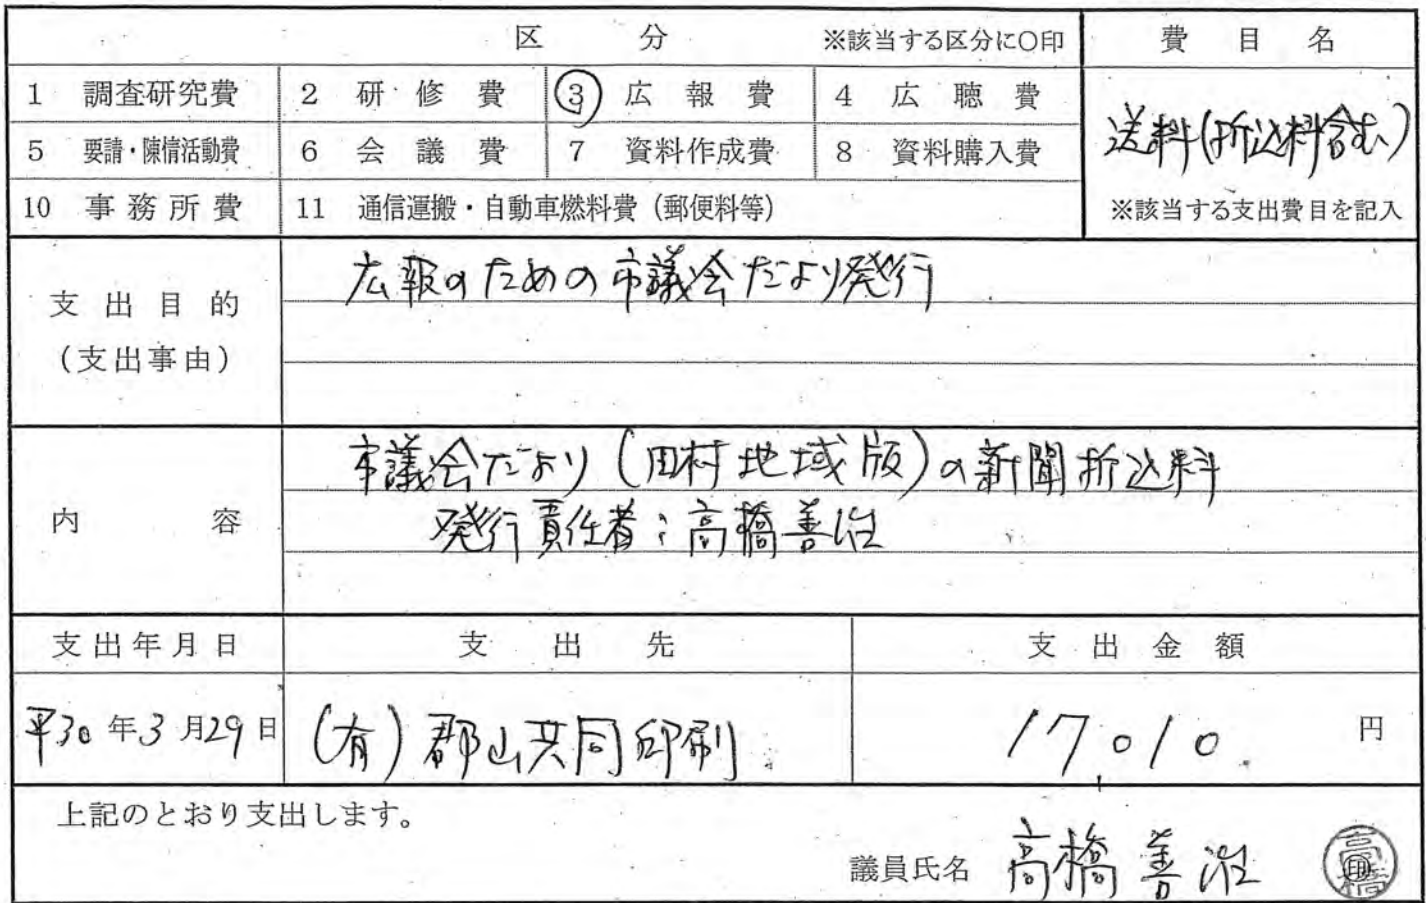 区 分 ※該当する区分に○印 費 目 名
1 調査研究費 2 研 修 費 ③ 広 報 費 4 広 聴 費
送料(折込料含む)
5 要請・陳情活動費 6 会 議 費 7 資料作成費 8 資料購入費
10 事務所費 11 通信運搬・自動車燃料費(郵便料等) ※該当する支出費目を記入
支出目的
(支出事由)
広報のための市議会だより発行
内 容
市議会だより(田村地域版)の新聞折込料
発行責任者:高橋善治
支出年月日 支 出 先 支 出 金 額
平30年3月29日 (有)郡山共同印刷 17,010 円
上記のとおり支出します。
議員氏名 高橋善治 ㊞
高橋